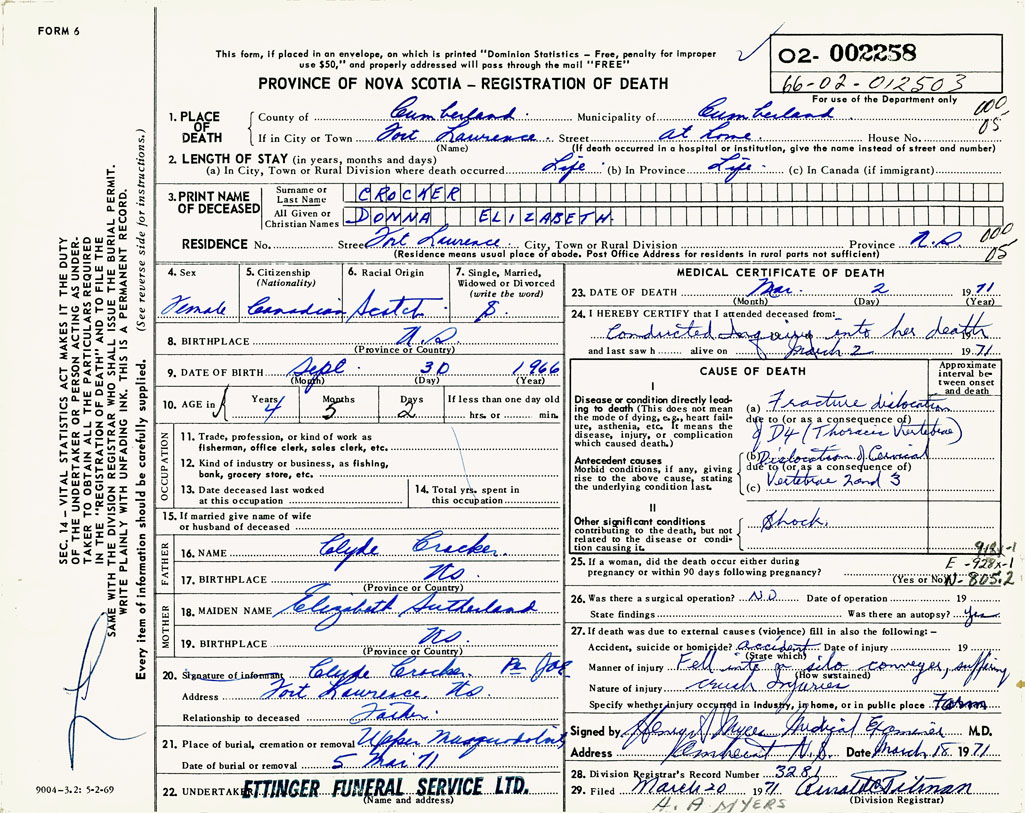 FORM 6
This form, if placed in an envelope, on which is printed "Dominion Statistics – Free, penalty for improper
use $50," and properly addressed will pass through the mail "FREE"
O2- 002258
66-02-012503
For use of the Department only
PROVINCE OF NOVA SCOTIA – REGISTRATION OF DEATH
1. PLACE OF DEATH
County of Cumberland Municipality of Cumberland 000
If in City or Town Fort Lawrence Street at home House No. 05
(Name) (If death occurred in a hospital or institution, give the name instead of street and number)
2. LENGTH OF STAY (in years, months and days)
(a) In City, Town or Rural Division where death occurred Life (b) In Province Life (c) In Canada (if immigrant)
3. PRINT NAME OF DECEASED
Surname or Last Name CROCKER
All Given or Christian Names DONNA ELIZABETH
RESIDENCE No. Street Fort Lawrence City, Town or Rural Division Province N.S 000
(Residence means usual place of abode. Post Office Address for residents in rural parts not sufficient) 05
4. Sex 5. Citizenship (Nationality) 6. Racial Origin 7. Single, Married, Widowed or Divorced (write the word)
Female Canadian Scotch S.
8. BIRTHPLACE N.S
(Province or Country)
9. DATE OF BIRTH Sept 30 1966
(Month) (Day) (Year)
10. AGE in Years Months Days If less than one day old
4 5 2 hrs. or min.
OCCUPATION
11. Trade, profession, or kind of work as
fisherman, office clerk, sales clerk, etc.
12. Kind of industry or business, as fishing,
bank, grocery store, etc.
13. Date deceased last worked
at this occupation
14. Total yrs. spent in
this occupation
15. If married give name of wife
or husband of deceased
FATHER
16. NAME Clyde Crocker
17. BIRTHPLACE NS.
(Province or Country)
MOTHER
18. MAIDEN NAME Elizabeth Sutherland
19. BIRTHPLACE NS.
(Province or Country)
20. Signature of informant Clyde Crocker
Address Fort Lawrence, NS
Relationship to deceased Father
21. Place of burial, cremation or removal Upper
Date of burial or removal 5 Mar 71
22. UNDERTAKER ETTINGER FUNERAL SERVICE LTD.
(Name and address)
MEDICAL CERTIFICATE OF DEATH
23. DATE OF DEATH Mar. 2 1971
(Month) (Day) (Year)
24. I HEREBY CERTIFY that I attended deceased from:
Conducted Inquiry into her death
and last saw h alive on March 2 1971
CAUSE OF DEATH
Approximate interval between onset and death
I
Disease or condition directly leading to death (This does not mean
the mode of dying, e.g., heart failure, asthenia, etc. It means the
disease, injury, or complication
which caused death.)
(a) Fracture dislocation
due to (or as a consequence of)
of D4 (Thoracic Vertebrae)
Antecedent causes
Morbid conditions, if any, giving
rise to the above cause, stating
the underlying condition last.
(b) Dislocation of Cervical
due to (or as a consequence of)
(c) Vertebrae 2 and 3
II
Other significant conditions
contributing to the death, but not
related to the disease or condition causing it.
Shock.
E -928x-1
N-805.2
25. If a woman, did the death occur either during
pregnancy or within 90 days following pregnancy?
(Yes or No)
26. Was there a surgical operation? NO Date of operation 19
State findings Was there an autopsy? Yes
27. If death was due to external causes (violence) fill in also the following: –
Accident, suicide or homicide? accident Date of injury 19
(State which)
Manner of injury Fell into a silo conveyer, suffering
(How sustained)
Nature of injury crush Injuries
Specify whether injury occurred in industry, in home, or in public place Farm
Signed by Medical Examiner M.D.
Address Amherst N.S. Date March 18 1971
28. Division Registrar's Record Number 3281
29. Filed March 20 1971 Pitman
(Division Registrar)
H. A MYERS
SEC. 14 – VITAL STATISTICS ACT MAKES IT THE DUTY
OF THE UNDERTAKER OR PERSON ACTING AS UNDER-
TAKER TO OBTAIN ALL THE PARTICULARS REQUIRED
IN THE "REGISTRATION OF DEATH" AND TO FILE THE
SAME WITH THE DIVISION REGISTRAR WHO SHALL ISSUE THE BURIAL PERMIT.
WRITE PLAINLY WITH UNFADING INK. THIS IS A PERMANENT RECORD.
Every item of information should be carefully supplied. (See reverse side for instructions.)
9004-3.2: 5-2-69